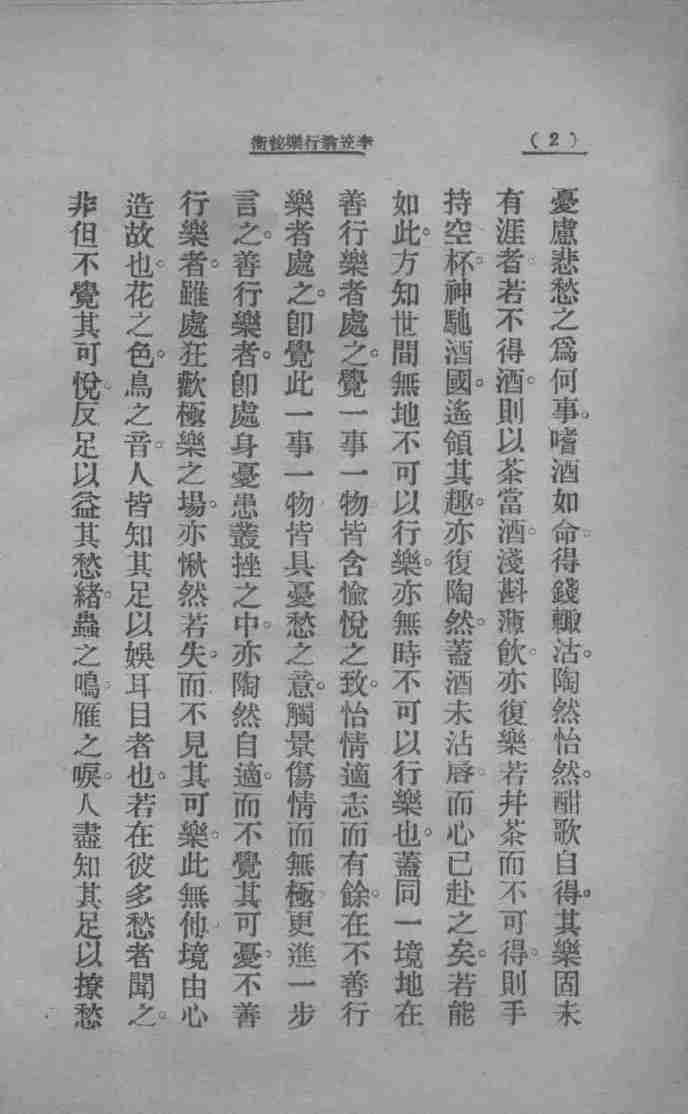 （2）
李笠翁行樂秘術
憂慮悲愁之爲何事。嗜酒如命。得錢輒沽。陶然怡然。酣歌自得。其樂固未
有涯者。若不得酒。則以茶當酒。淺斟薄飲。亦復樂若。幷茶而不可得。則手
持空杯。神馳酒國。遙領其趣。亦復陶然。蓋酒未沾唇。而心已赴之矣。若能
如此。方知世間無地不可以行樂。亦無時不可以行樂也。蓋同一境地。在
善行樂者處之。覺一事一物。皆含愉悅之致。怡情適志而有餘。在不善行
樂者處之。卽覺此一事一物。皆具憂愁之意。觸景傷情而無極。更進一步
言之。善行樂者。卽處身憂患叢挫之中。亦陶然自適。而不覺其可憂。不善
行樂者。雖處狂歡極樂之場。亦愀然若失。而不見其可樂。此無他。境由心
造故也。花之色。鳥之音。人皆知其足以娛耳目者也。若在彼多愁者聞之。
非但不覺其可悅。反足以益其愁緒。蟲之鳴。雁之唳。人盡知其足以撩愁